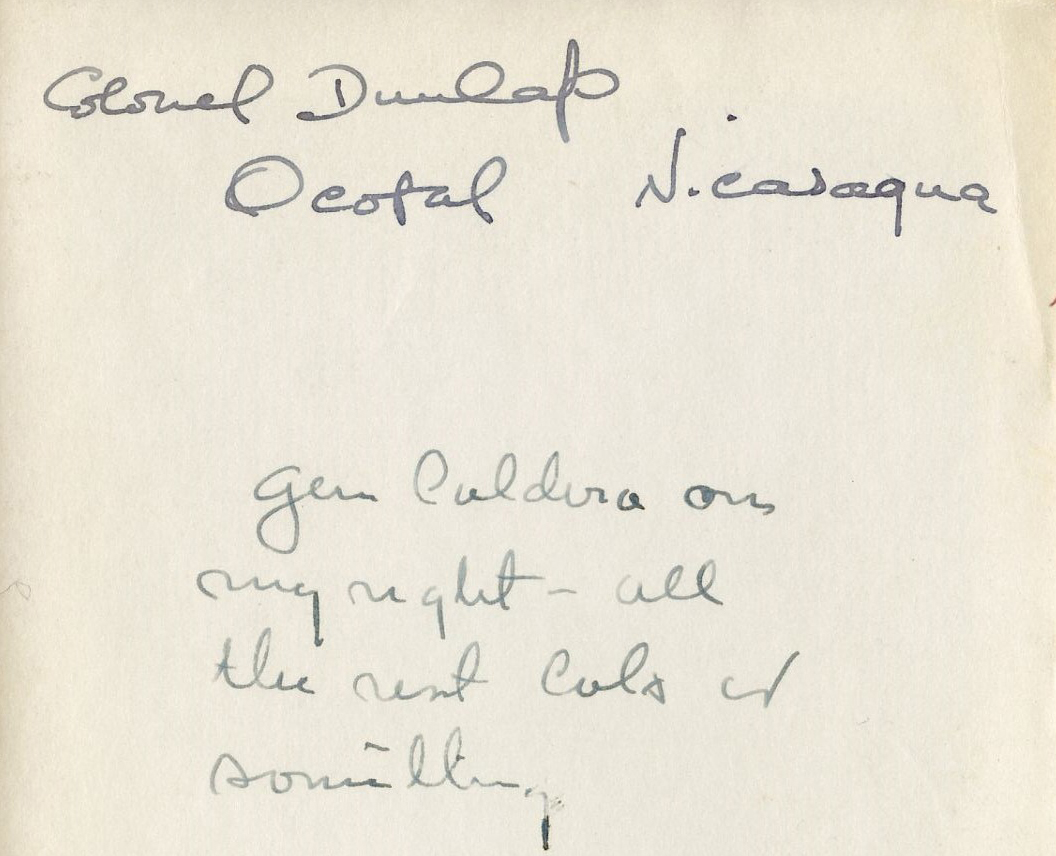 Colonel Dunlap
Ocotal Nicaragua
Gen Caldera on
my right - all
the rest Cols or
something